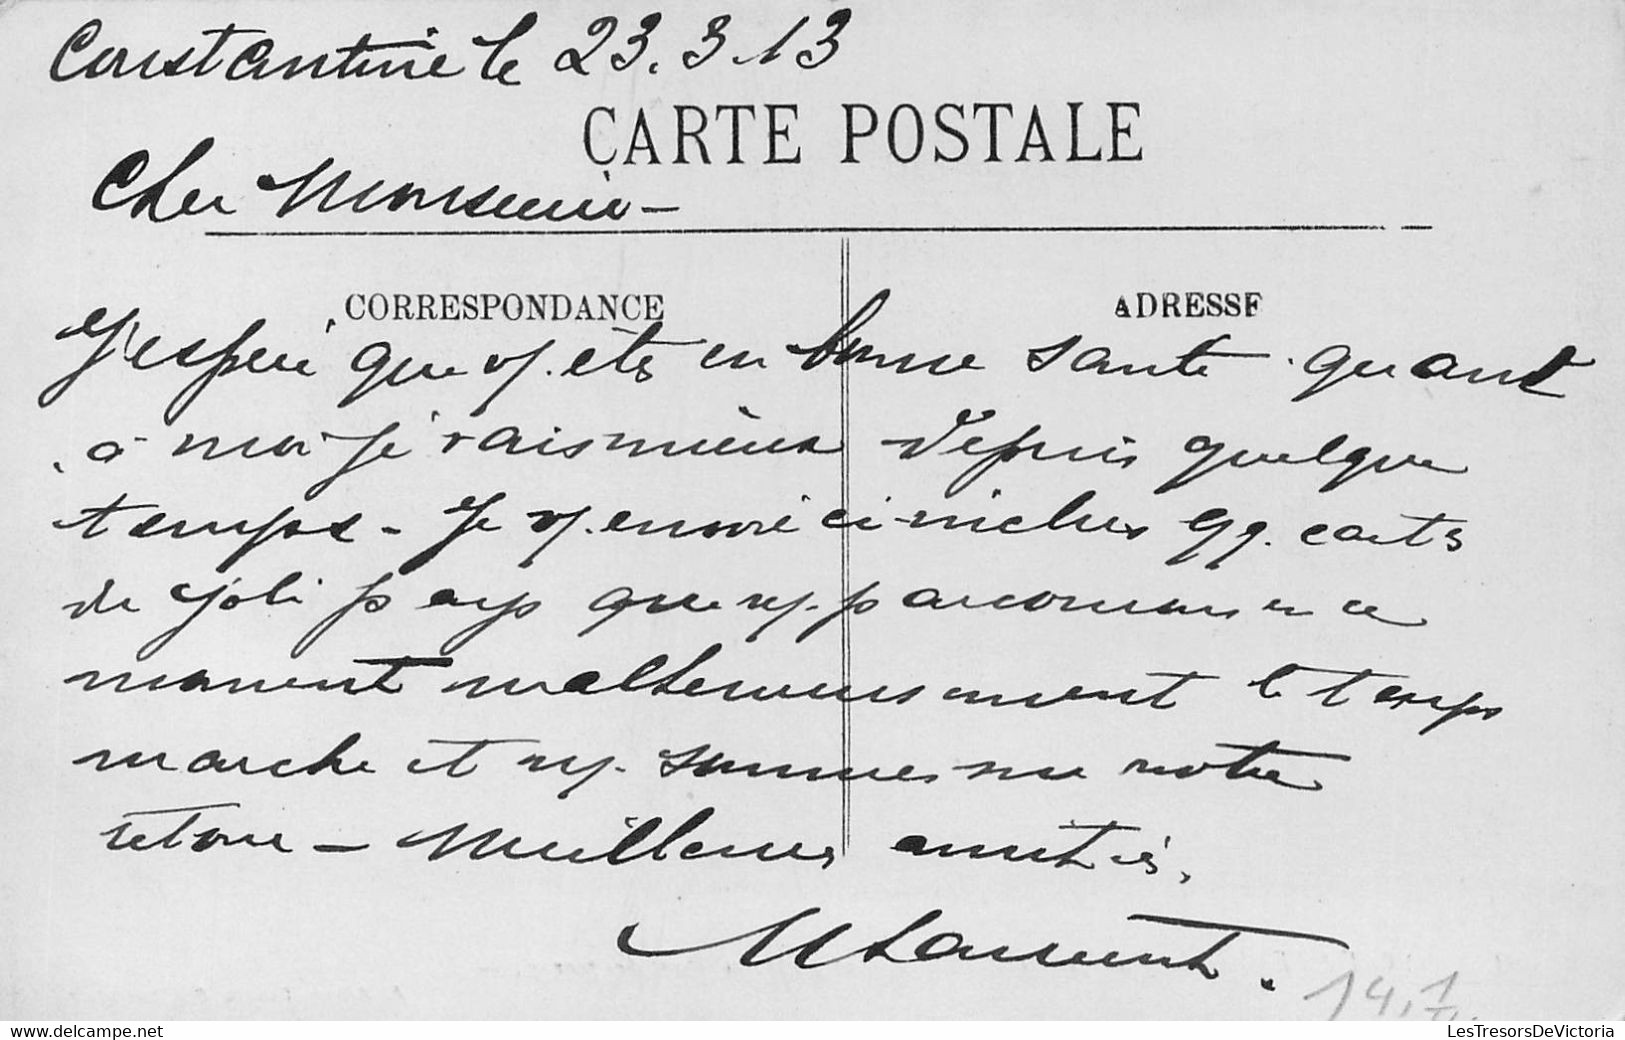 Constantine le 23.3.13
CARTE POSTALE
Cher Monsieur –
CORRESPONDANCE
ADRESSE
J'espère que v. êtes en bonne santé. quant
à moi je vais mieux depuis quelque
temps – Je v. envoie ci-inclus qq. cartes
du joli pays que ns. parcourons en ce
moment malheureusement le temps
marche et ns. sommes sur notre
retour – Meilleures amitiés.
Laurent.
14.1
LesTresorsDeVictoria